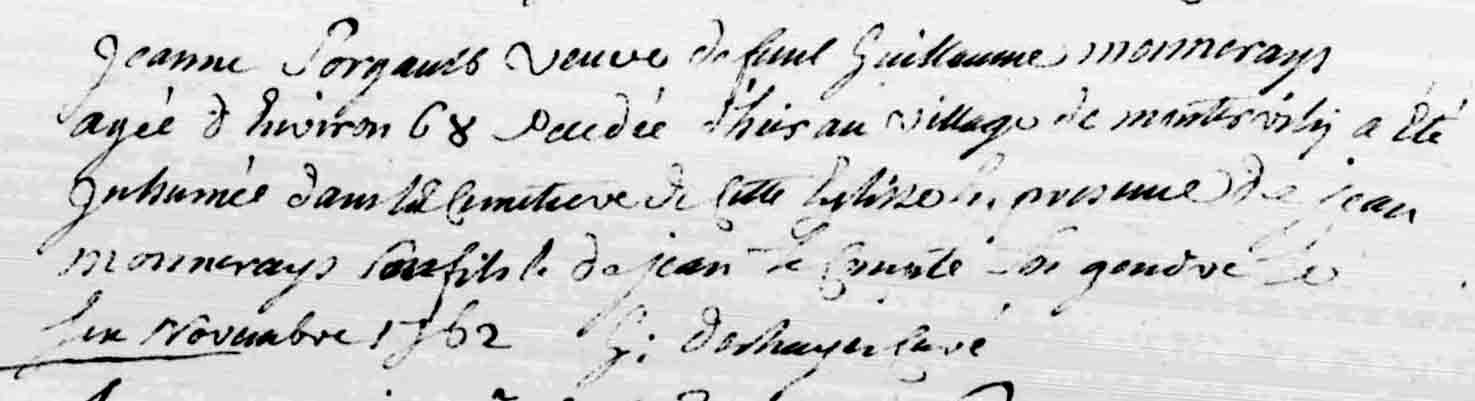 Jeanne Porgault veuve de feu Guillaume monnerays
agée d'Environ 68 décédée d'hier au village de a été
Inhumée dans le Cimetiere de Cette Eglise En presence de jean
monnerays son fils & de jean le Comte son gendre le
six Novembre 1762 G: Deshayes Curé